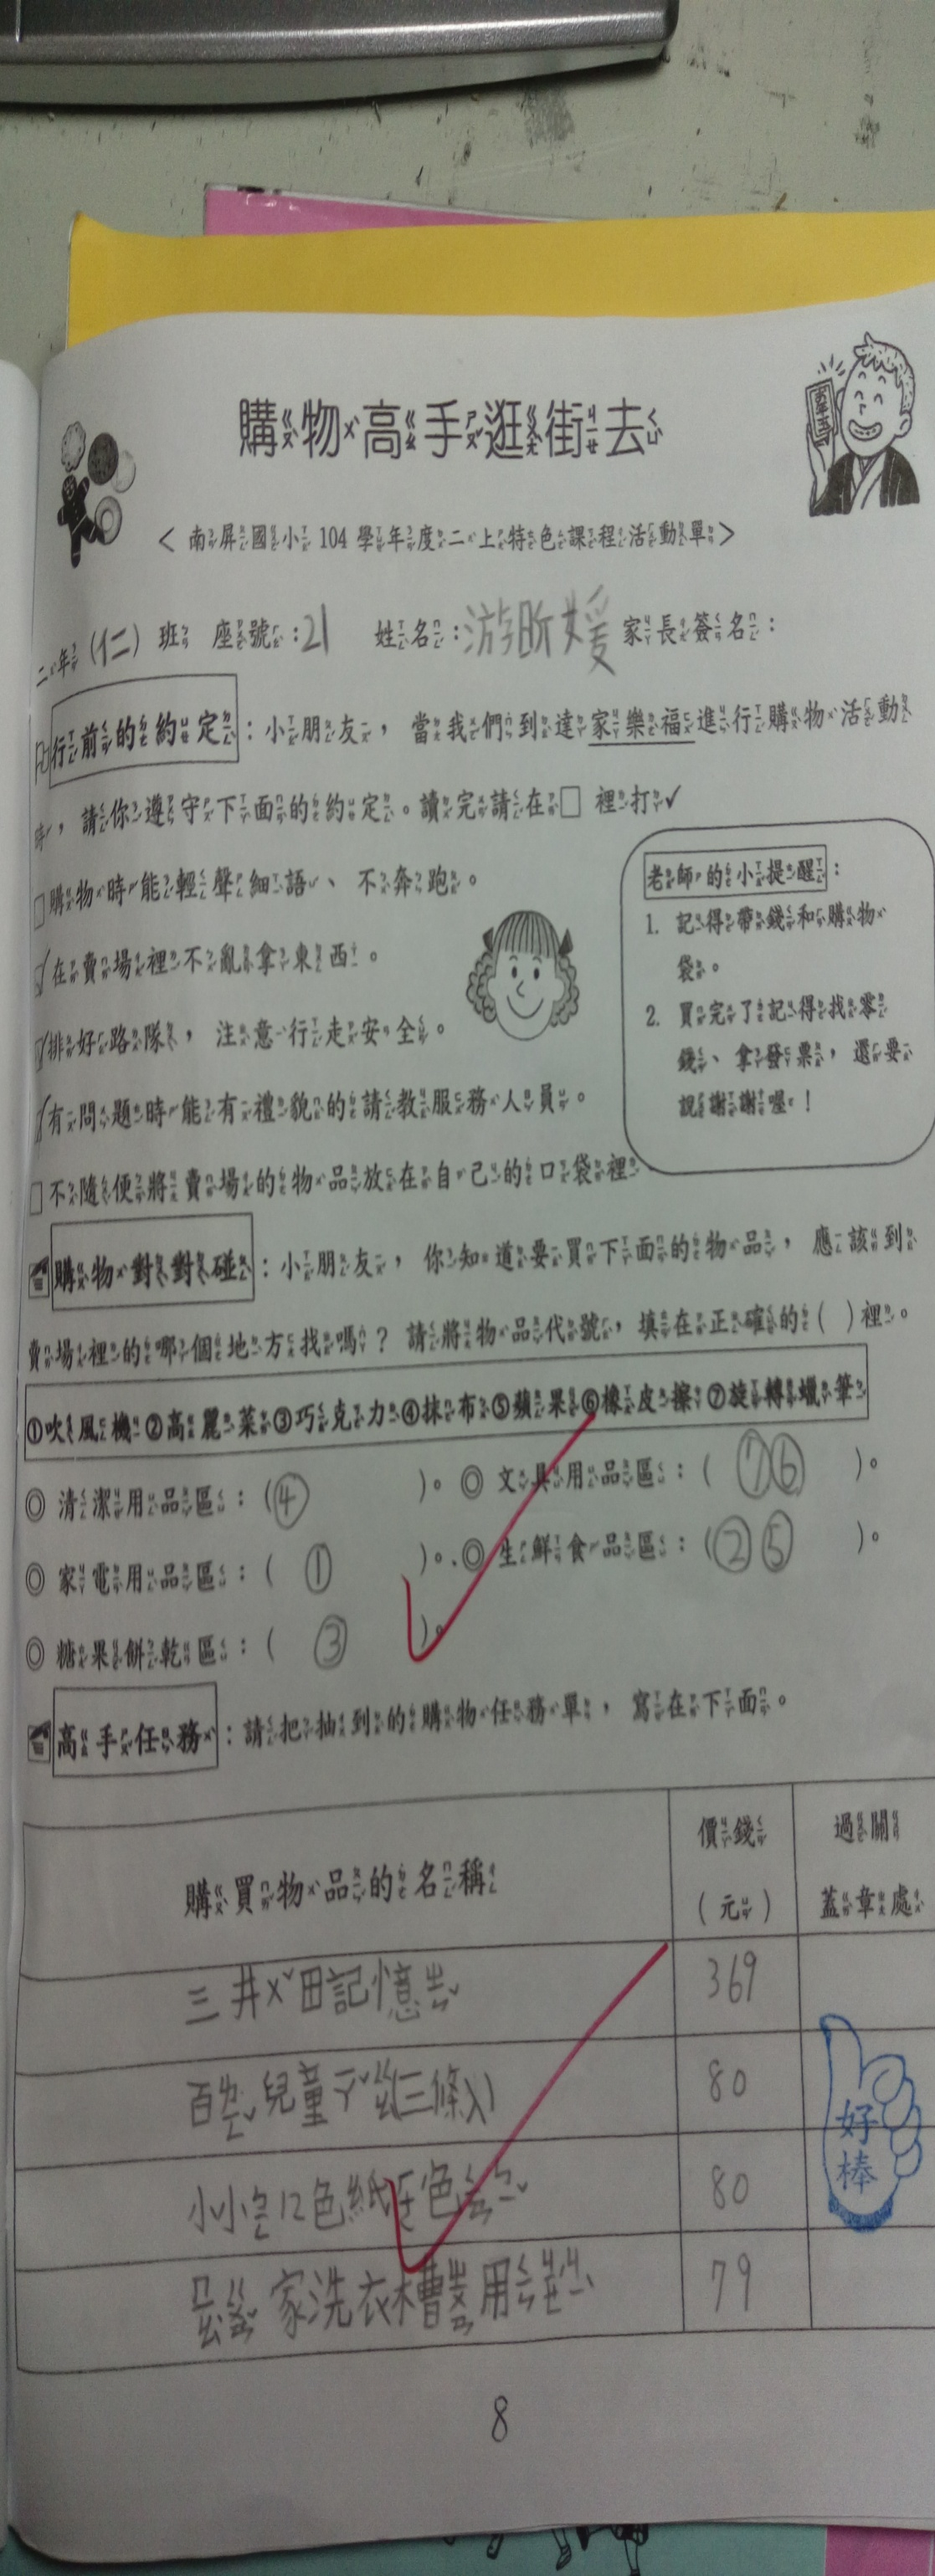 購物高手逛街去
< 南屏國小 104 學年度二上特色課程活動單 >
二年(仁) 班 座號:21 姓名:游昕媛 家長簽名:
行前的約定:小朋友,當我們到達家樂福進行購物活動
時,請你遵守下面的約定。讀完請在□ 裡打✓
□購物時能輕聲細語、不奔跑。
☑在賣場裡不亂拿東西。
☑排好路隊,注意行走安全。
☑有問題時能有禮貌的請教服務人員。
□不隨便將賣場的物品放在自己的口袋裡
老師的小提醒:
1. 記得帶錢和購物
袋。
2. 買完了記得找零
錢、拿發票,還要
說謝謝喔!
購物對對碰:小朋友,你知道要買下面的物品,應該到
賣場裡的哪個地方找嗎?請將物品代號,填在正確的( )裡。
①吹風機②高麗菜③巧克力④抹布⑤蘋果⑥橡皮擦⑦旋轉蠟筆
◎ 清潔用品區:(④)。◎ 文具用品區:(⑦⑥)。
◎ 家電用品區:(①)。◎ 生鮮食品區:(②⑤)。
◎ 糖果餅乾區:(③)。
高手任務:請把抽到的購物任務單,寫在下面。
購買物品的名稱 價錢(元) 過關蓋章處
三井ㄨˇ田記憶ㄓㄣˇ 369
百 兒童 (三條入) 80
小小 12色紙 色 80
家洗衣槽 用 79
好棒
8